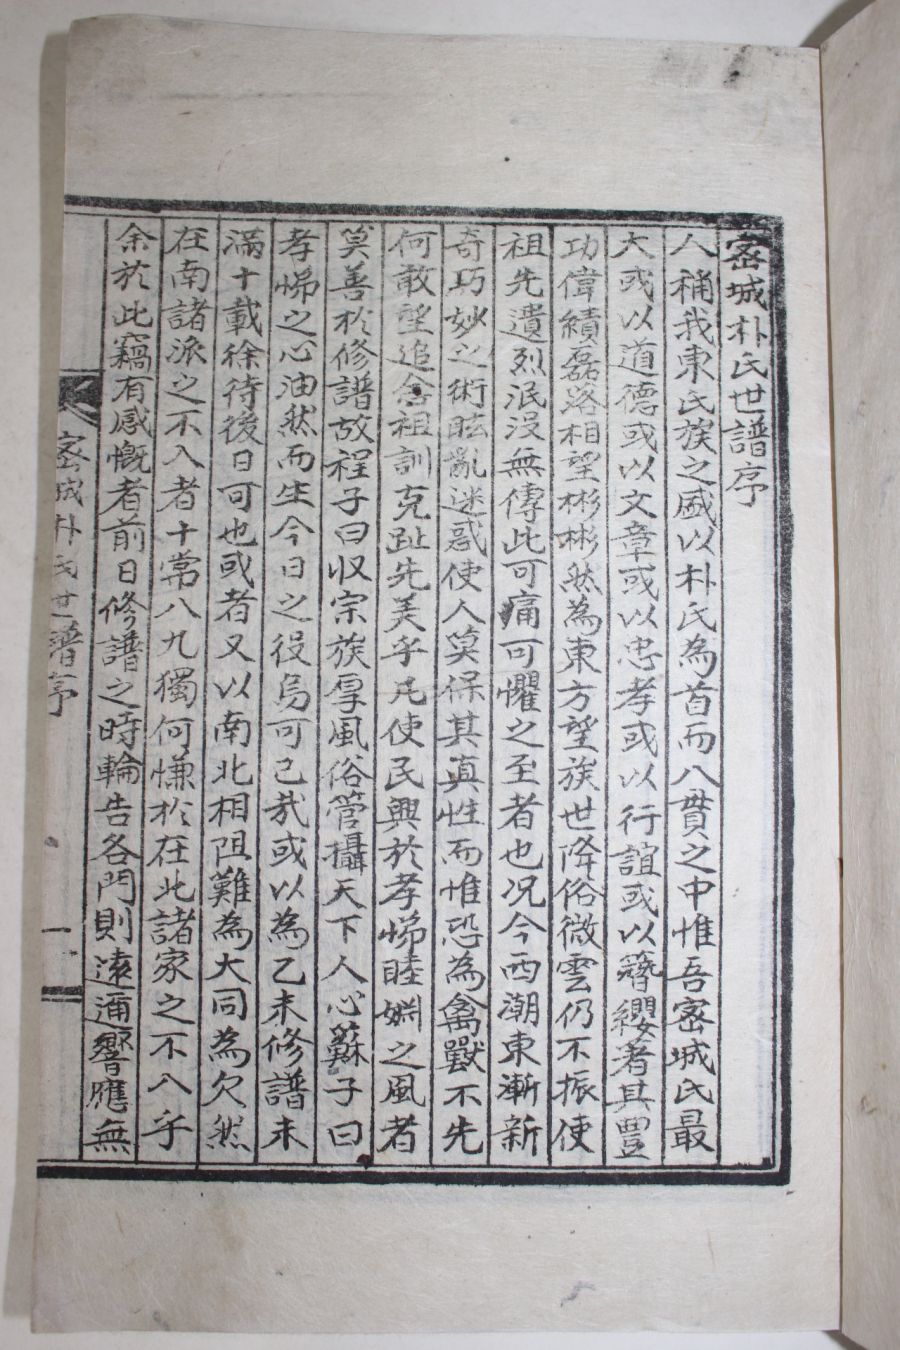 密城朴氏世譜序
人稱我東氏族之盛以朴氏為首而八貫之中惟吾密城氏最
大或以道德或以文章或以忠孝或以行誼或以簪纓著其豐
功偉績磊落相望彬彬然為東方望族世降俗微雲仍不振使
祖先遺烈泯沒無傳此可痛可懼之至者也况今西潮東漸新
奇巧妙之術眩亂迷惑使人莫保其真性而惟恐為禽獸不先
何敢望追念祖訓克趾先美乎凡使民興於孝悌睦婣之風者
莫善於修譜故程子曰収宗族厚風俗管攝天下人心蘇子曰
孝悌之心油然而生今日之役烏可已㢤或以為乙未修譜未
滿十載徐待後日可也或者又以南北相阻難為大同為欠然
在南諸派之不入者十常八九獨何慊於在北諸家之不入乎
余於此竊有感慨者前日修譜之時輪告各門則遠邇響應無
密城朴氏世譜序
一